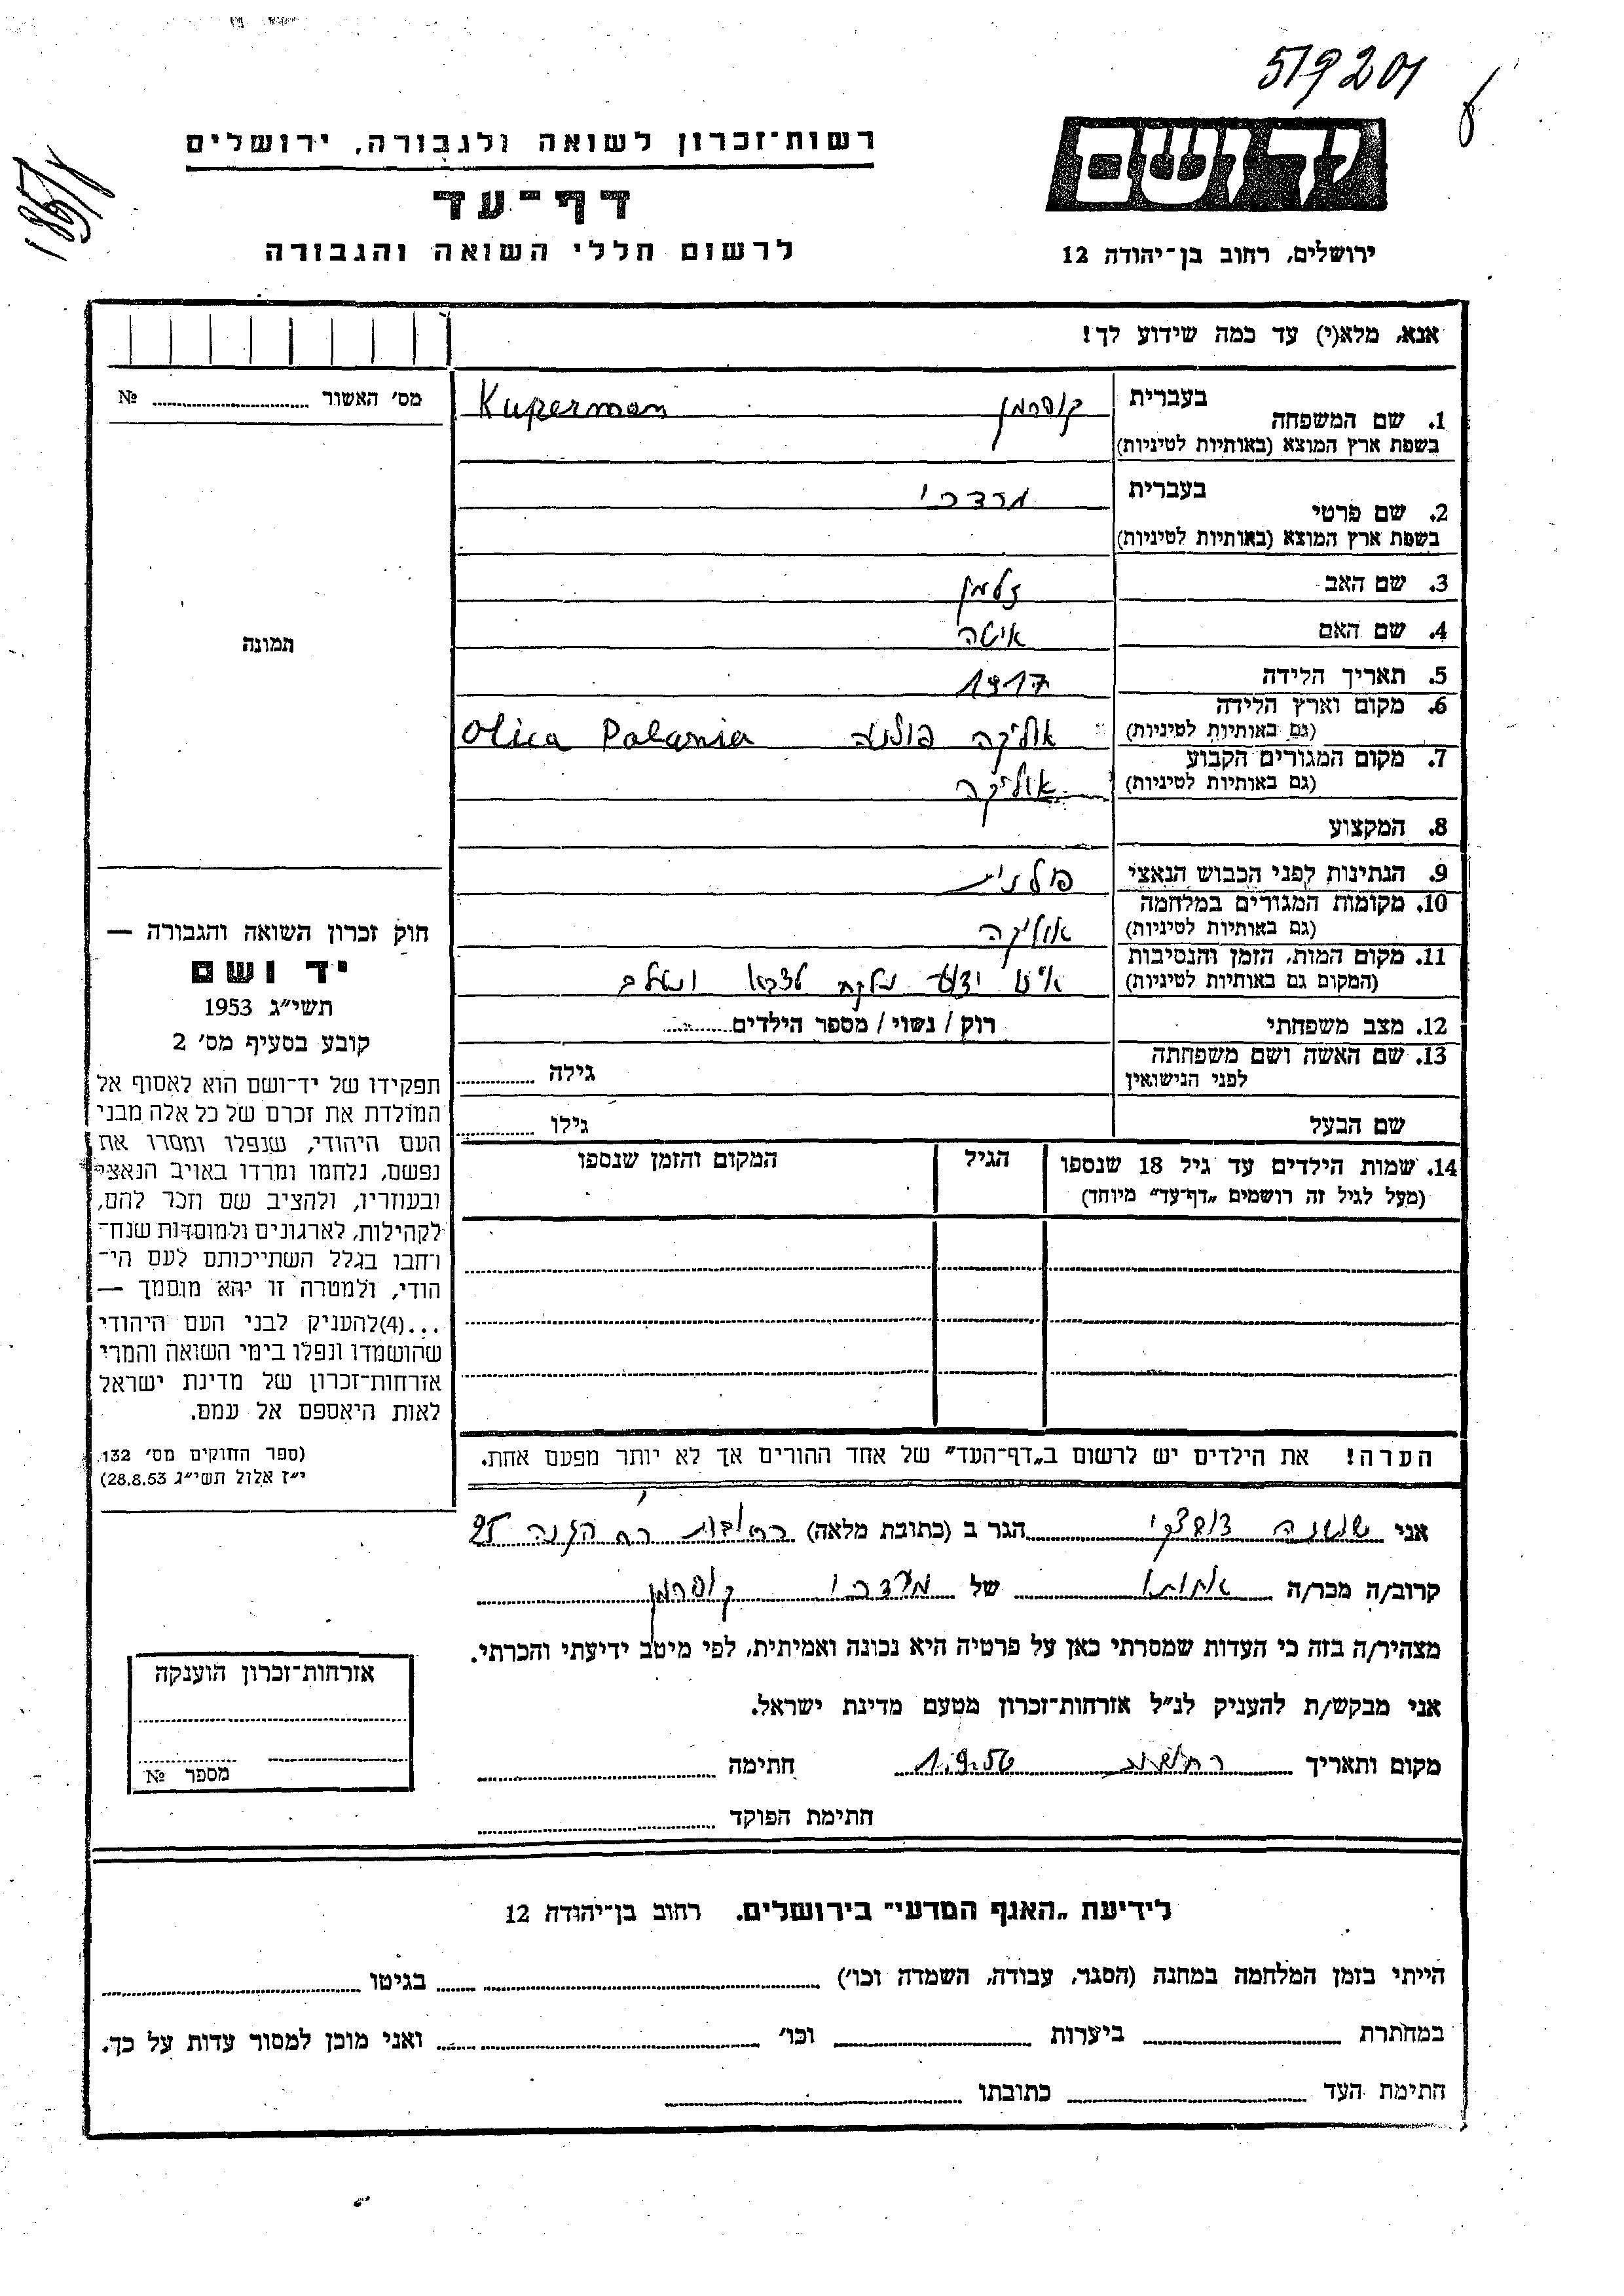 519201
רשות־זכרון לשואה ולגבורה, ירושלים
יד ושם
דף־עד
לרשום חללי השואה והגבורה
ירושלים, רחוב בן־יהודה 12
אנא, מלא(י) עד כמה שידוע לך!
מס׳ האשור № 
1. שם המשפחה בעברית קופרמן Kuperman
בשפת ארץ המוצא (באותיות לטיניות)
2. שם פרטי בעברית מרדכי
בשפת ארץ המוצא (באותיות לטיניות)
3. שם האב זלמן
4. שם האם איטה
5. תאריך הלידה 1917
6. מקום וארץ הלידה
(גם באותיות לטיניות) אוליקה פולניה Olica Polania
7. מקום המגורים הקבוע
(גם באותיות לטיניות) אוליקה
8. המקצוע
9. הנתינות לפני הכבוש הנאצי פולנית
10. מקומות המגורים במלחמה
(גם באותיות לטיניות) אוליקה
11. מקום המות, הזמן והנסיבות
(המקום גם באותיות לטיניות) אינו ידוע נלקח לצבא ונעלם
12. מצב משפחתי רוק / נשוי / מספר הילדים
13. שם האשה ושם משפחתה
לפני הנישואין גילה
שם הבעל גילו
14. שמות הילדים עד גיל 18 שנספו הגיל המקום והזמן שנספו
(מעל לגיל זה רושמים „דף־עד״ מיוחד)
הערה! את הילדים יש לרשום ב„דף־העד״ של אחד ההורים אך לא יותר מפעם אחת.
תמונה
חוק זכרון השואה והגבורה —
יד ושם
תשי״ג 1953
קובע בסעיף מס׳ 2
תפקידו של יד־ושם הוא לאסוף אל
המולדת את זכרם של כל אלה מבני
העם היהודי, שנפלו ומסרו את
נפשם, נלחמו ומרדו באויב הנאצי
ובעוזריו, ולהציב שם וזכר להם,
לקהילות, לארגונים ולמוסדות שנח־
רחבו בגלל השתייכותם לעם הי־
הודי, ולמטרה זו יהא מוסמך —
...(4)להעניק לבני העם היהודי
שהושמדו ונפלו בימי השואה והמרי
אזרחות־זכרון של מדינת ישראל
לאות היאספם אל עמם.
(ספר החוקים מס׳ 132,
י״ז אלול תשי״ג 28.8.53)
אני שושנה הגר ב (כתובת מלאה) רחובות רח ההגנה 25
קרוב/ה מכר/ה אחותו של מרדכי קופרמן
מצהיר/ה בזה כי העדות שמסרתי כאן על פרטיה היא נכונה ואמיתית, לפי מיטב ידיעתי והכרתי.
אני מבקש/ת להעניק לנ״ל אזרחות־זכרון מטעם מדינת ישראל.
מקום ותאריך רחובות 1.9.56 חתימה
חתימת הפוקד
אזרחות־זכרון הוענקה
מספר №
לידיעת „האגף המדעי״ בירושלים. רחוב בן־יהודה 12
הייתי בזמן המלחמה במחנה (הסגר, עבודה, השמדה וכו׳) בגיטו
במחתרת ביערות וכו׳ ואני מוכן למסור עדות על כך.
חתימת העד כתובתו